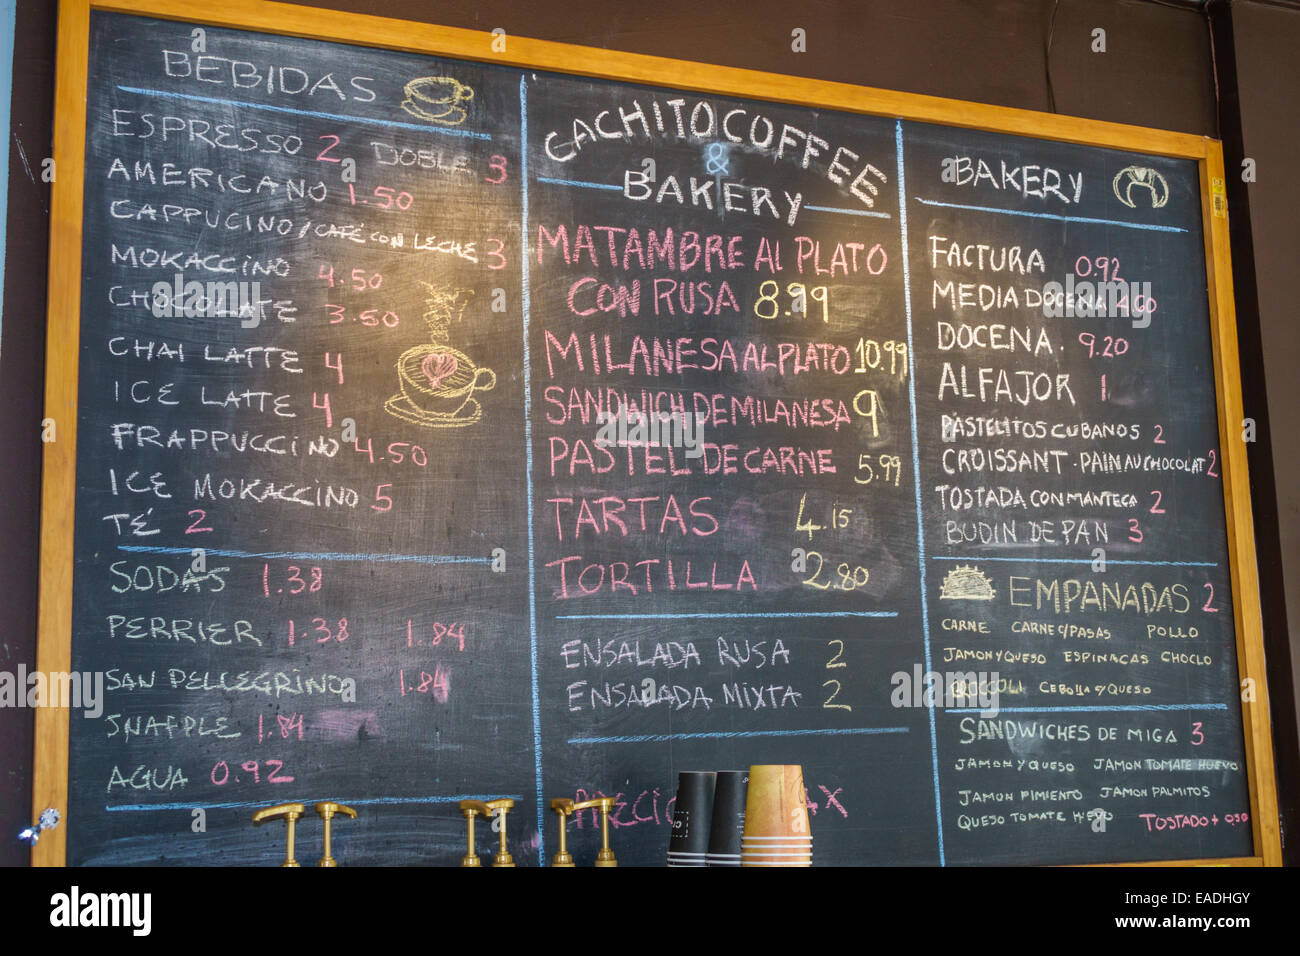 BEBIDAS
ESPRESSO 2 DOBLE 3
AMERICANO 1.50
CAPPUCINO/CAFÉ CON LECHE 3
MOKACCINO 4.50
CHOCOLATE 3.50
CHAI LATTE 4
ICE LATTE 4
FRAPPUCCINO 4.50
ICE MOKACCINO 5
TÉ 2
SODAS 1.38
PERRIER 1.38 1.84
SAN PELLEGRINO 1.84
SNAPPLE 1.84
AGUA 0.92
CACHITO COFFEE
&
BAKERY
MATAMBRE AL PLATO
CON RUSA 8.99
MILANESA AL PLATO 10.99
SANDWICH DE MILANESA 9
PASTEL DE CARNE 5.99
TARTAS 4.15
TORTILLA 2.80
ENSALADA RUSA 2
ENSALADA MIXTA 2
BAKERY
FACTURA 0.92
MEDIA DOCENA 4.60
DOCENA. 9.20
ALFAJOR 1
PASTELITOS CUBANOS 2
CROISSANT - PAIN AU CHOCOLAT 2
TOSTADA CON MANTECA 2
BUDIN DE PAN 3
EMPANADAS 2
CARNE CARNE C/PASAS POLLO
JAMON Y QUESO ESPINACAS CHOCLO
BROCCOLI CEBOLLA Y QUESO
SANDWICHES DE MIGA 3
JAMON Y QUESO JAMON TOMATE HUEVO
JAMON PIMIENTO JAMON PALMITOS
QUESO TOMATE HUEVO TOSTADO + 0.50
alamy stock photo
EADHGY
www.alamy.com